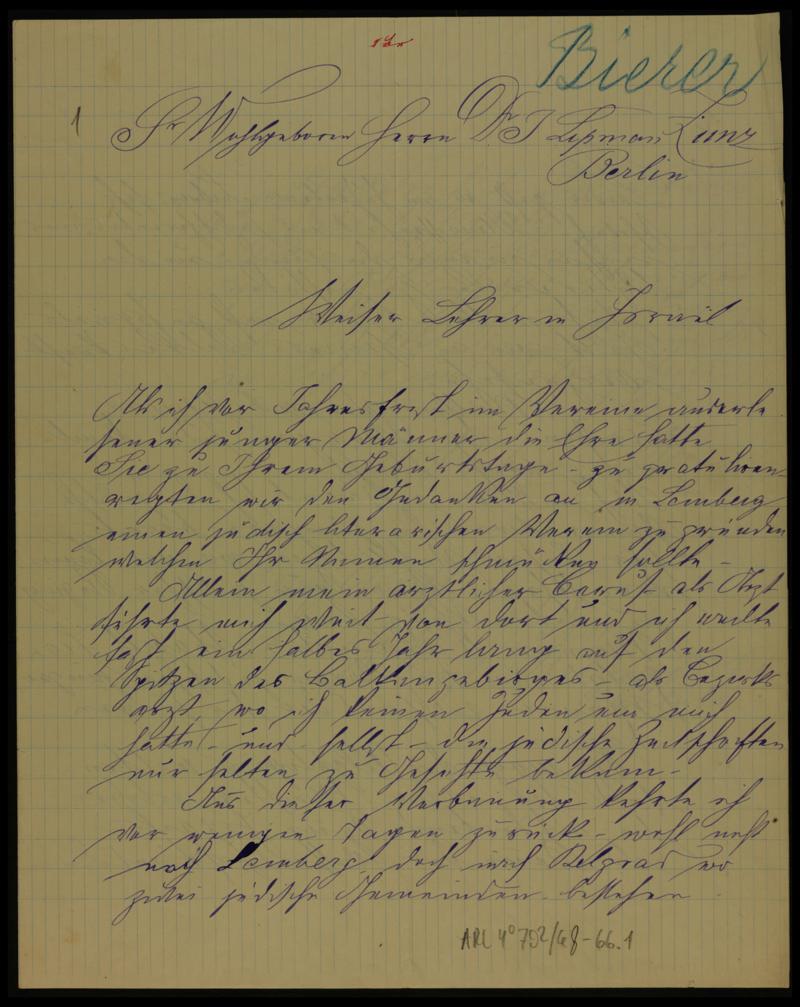 Bierer
1
Sr Wohlgeboren Herrn Dr J Lipman Zunz
Berlin
Weiser Lehrer in Israël
Als ich vor Jahresfrist im Vereine auserle
sener junger Männer die Ehre hatte
Sie zu Ihrem Geburtstage - zu gratuliren
regten wir den Gedanken an in Lemberg
einen jüdisch literarischen Verein zu gründen
welchen Ihr Namen schmücken sollte -
Allein mein arztlicher Beruf als Arzt
führte mich weit von dort und ich weilte
fast ein halbes Jahr lang auf den
Spitzen des Balkangebirges - als Bezirks
arzt, wo ich keinen Juden um mich
hatte - und selbst - die jüdische Zeitschriften
nur selten zu Gesichte bekam -
Aus dieser Verbannung kehrte ich
vor wenigen Tagen zurück - wohl nicht
nach Lemberg, doch nach Belgrad wo
zwei jüdische Gemeinden bestehen
ARC 4° 792/G8-66.1